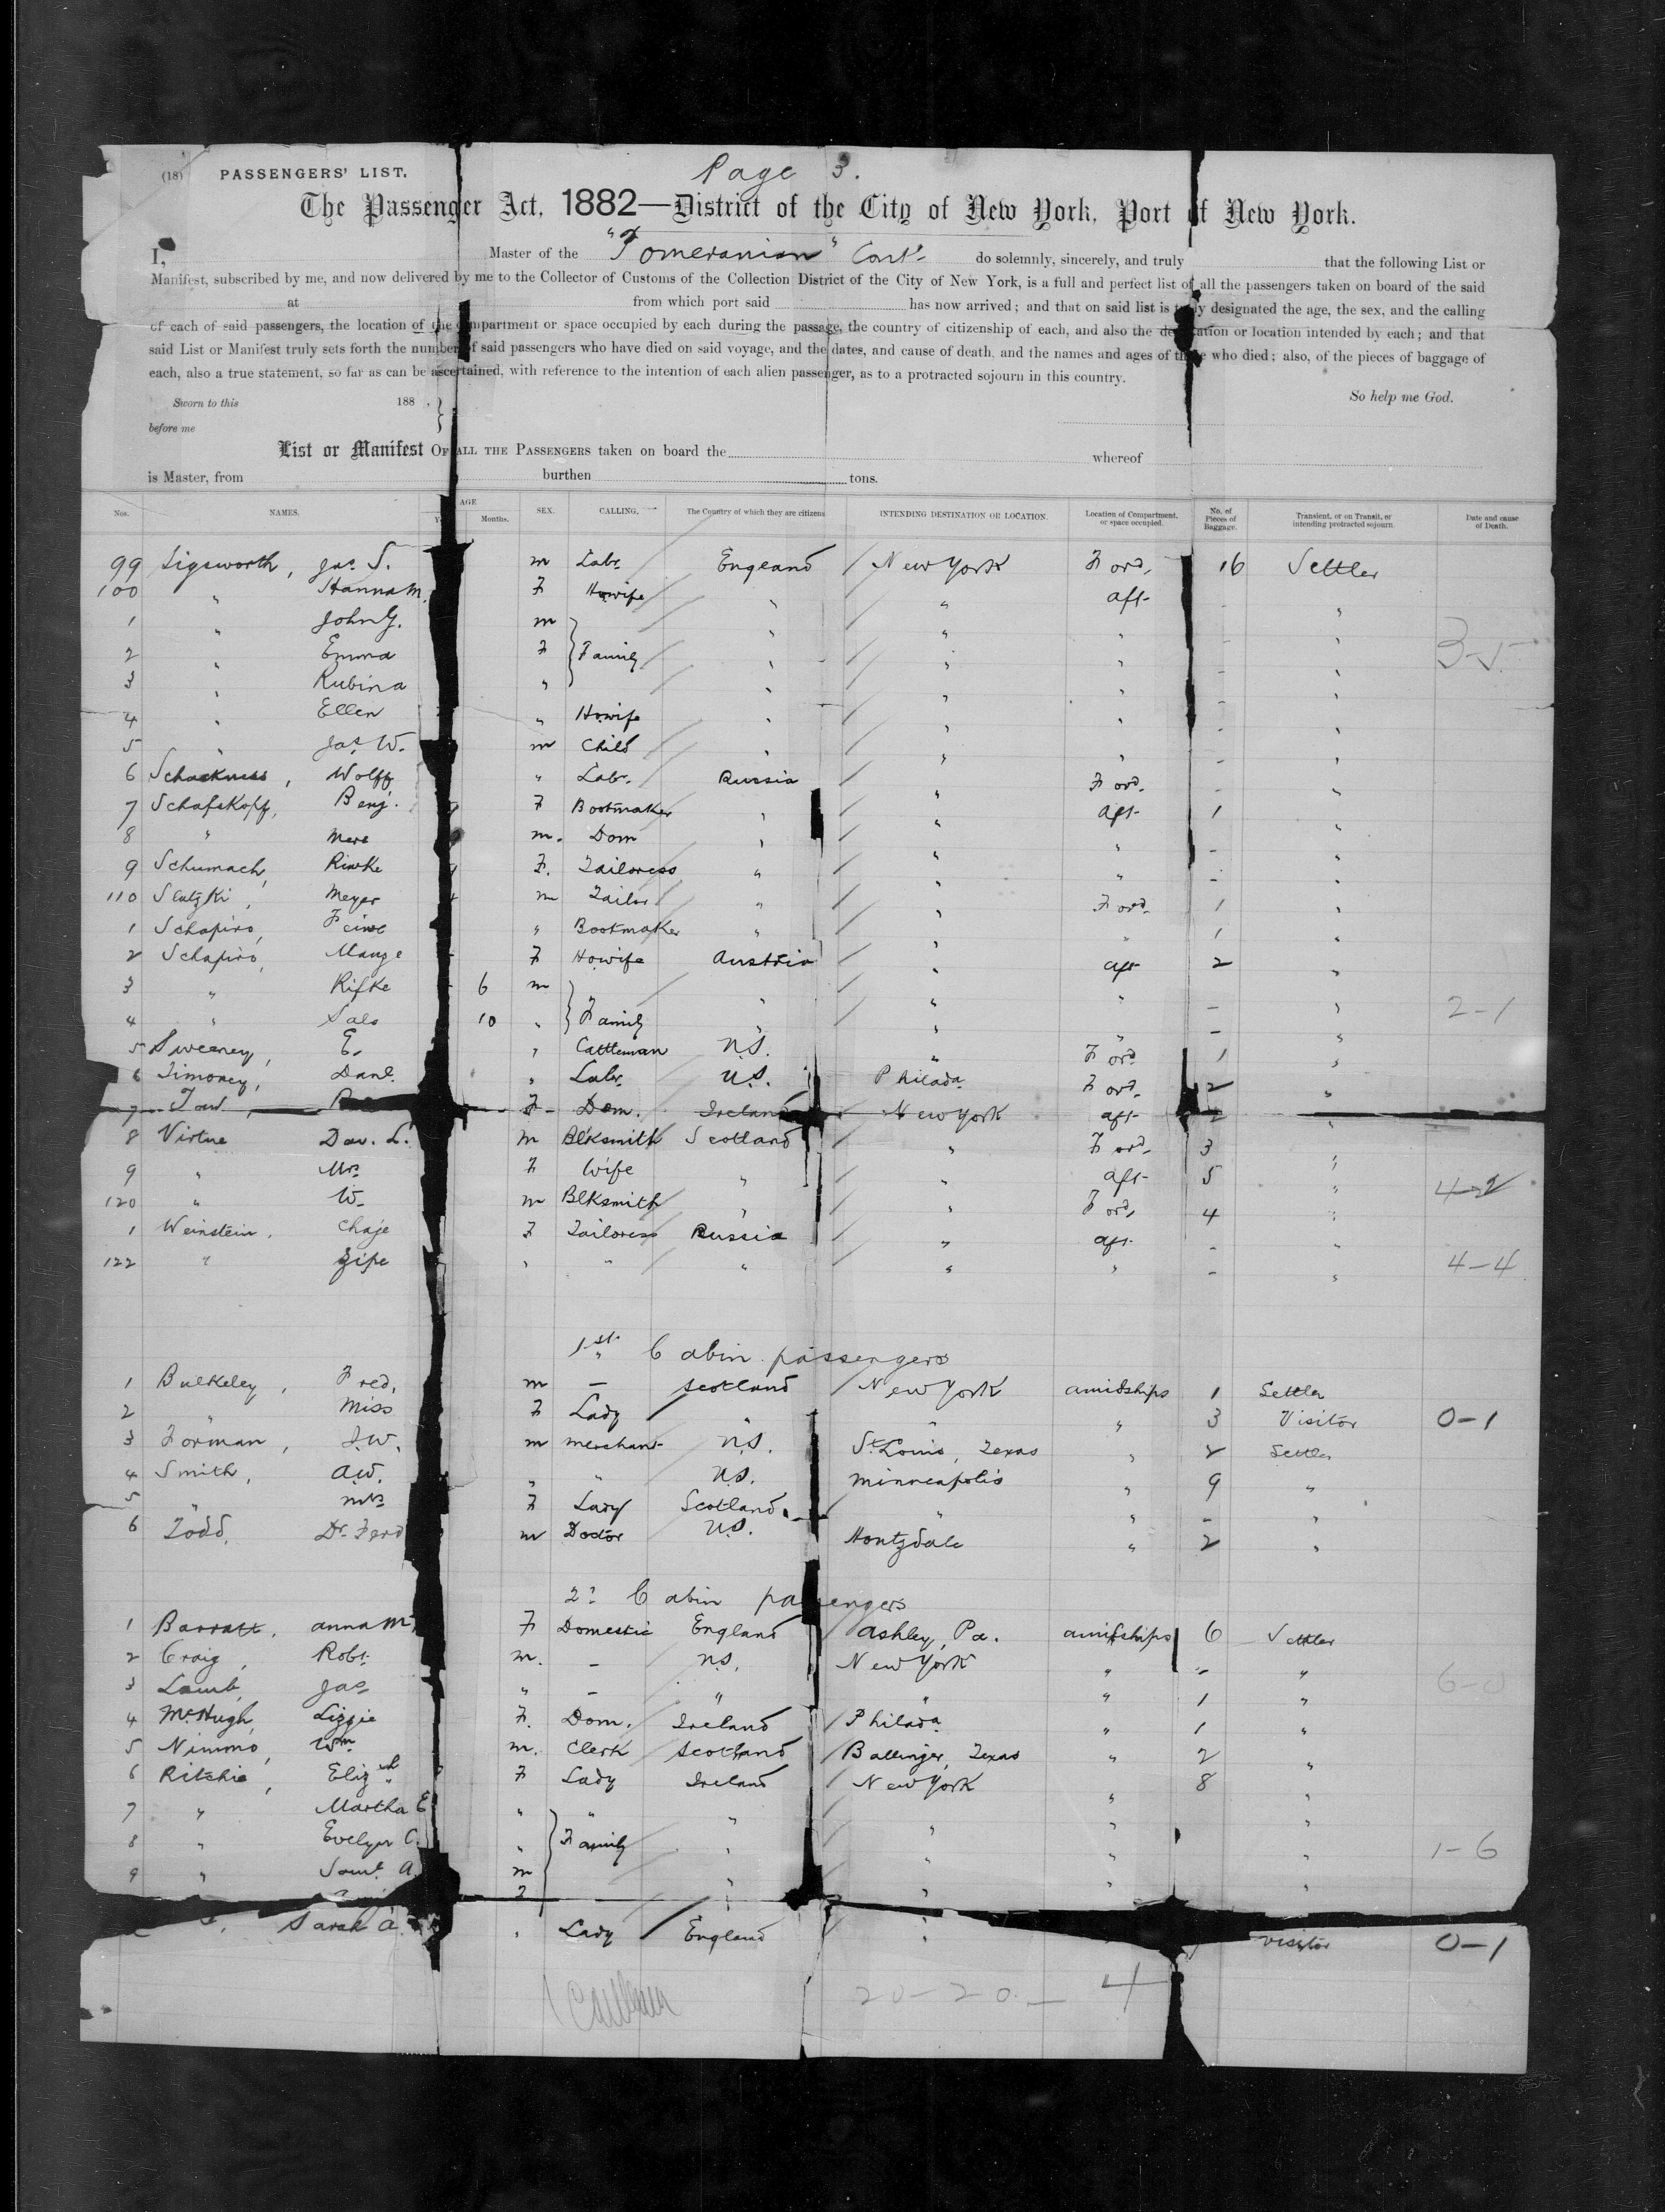 Page 3.
(18) PASSENGERS' LIST.
The Passenger Act, 1882—District of the City of New York, Port of New York.
I, Master of the "Pomeranian" Cont. do solemnly, sincerely, and truly that the following List or
Manifest, subscribed by me, and now delivered by me to the Collector of Customs of the Collection District of the City of New York, is a full and perfect list of all the passengers taken on board of the said
at from which port said has now arrived; and that on said list is truly designated the age, the sex, and the calling
of each of said passengers, the location of the compartment or space occupied by each during the passage, the country of citizenship of each, and also the destination or location intended by each; and that
said List or Manifest truly sets forth the number of said passengers who have died on said voyage, and the dates, and cause of death, and the names and ages of those who died; also, of the pieces of baggage of
each, also a true statement, so far as can be ascertained, with reference to the intention of each alien passenger, as to a protracted sojourn in this country.
So help me God.
Sworn to this 188 .
before me
List or Manifest OF ALL THE PASSENGERS taken on board the whereof
is Master, from burthen tons.
Nos. NAMES. AGE Months. SEX. CALLING. The Country of which they are citizens INTENDING DESTINATION OR LOCATION. Location of Compartment, or space occupied. No. of Pieces of Baggage. Transient, or on Transit, or intending protracted sojourn Date and cause of Death.
99 Sigsworth, Jas. S. m Labr. England New York Ford. 16 Settler
100 " Hanna M. F Howife " " aft - "
1 " John G. m " " " - "
2 " Emma F Family " " " - " 3-5
3 " Rubina " " " " - "
4 " Ellen " Howife " " " - "
5 " Jas. W. m Child " " " - "
6 Schackness, Wolff " Labr. Russia " Ford. - "
7 Schafskopf, Benj. F Bootmaker " " aft 1 "
8 " Mere m. Dom " " " - "
9 Schumach, Riwke F. Tailoress " " " - "
110 Slutzki, Meyer m Tailor " " Ford. 1 "
1 Schapiro, " Bootmaker " " " 1 "
2 Schapiro, F Howife Austria " aft 2 "
3 " Rifke 6 m " " " " - " 2-1
4 " Salo 10 " Family " " " - "
5 Sweeney, E. " Cattleman U.S. " Ford 1 "
6 Timoney, Danl. " Labr. U.S. Philada Ford. 2 "
7 F Dom. Ireland New York aft 2 "
8 Virtue Dav. L. m Blksmith Scotland " Ford. 3 "
9 " Mrs F Wife " " aft 5 " 4-2
120 " W. m Blksmith " " Ford, 4 "
1 Weinstein, Chaje F Tailoress Russia " aft - "
122 " Zipe " " " " " - " 4-4
1st Cabin passengers
1 Bulkeley, Fred, m — Scotland New York amidships 1 Settler
2 " Miss F Lady " " " 3 Visitor 0-1
3 Forman, J.W. m merchant U.S. St. Louis, Texas " 2 Settler
4 Smith, A.W. " " U.S. Minneapolis " 9 "
5 " Mrs F Lady Scotland " " - "
6 Todd, Dr. Ferd m Doctor U.S. Hontzdale " 2 "
2d Cabin passengers
1 Barratt, Anna M. F Domestic England Ashley, Pa. amidships 6 Settler
2 Craig, Robt. m. — U.S. New York " - " 6-0
3 Lamb, Jas " — " " " 1 "
4 McHugh, Lizzie F. Dom. Ireland Philada " 1 "
5 Nimmo, Wm m. Clerk Scotland Ballinger, Texas " 2 "
6 Ritchie, Elizth F Lady Ireland New York " 8 "
7 " Martha E " " " " " "
8 " Evelyn C. " Family " " " " 1-6
9 " Saml. A. m " " " "
Sarah A. " Lady England " Visitor 0-1
20-20-4